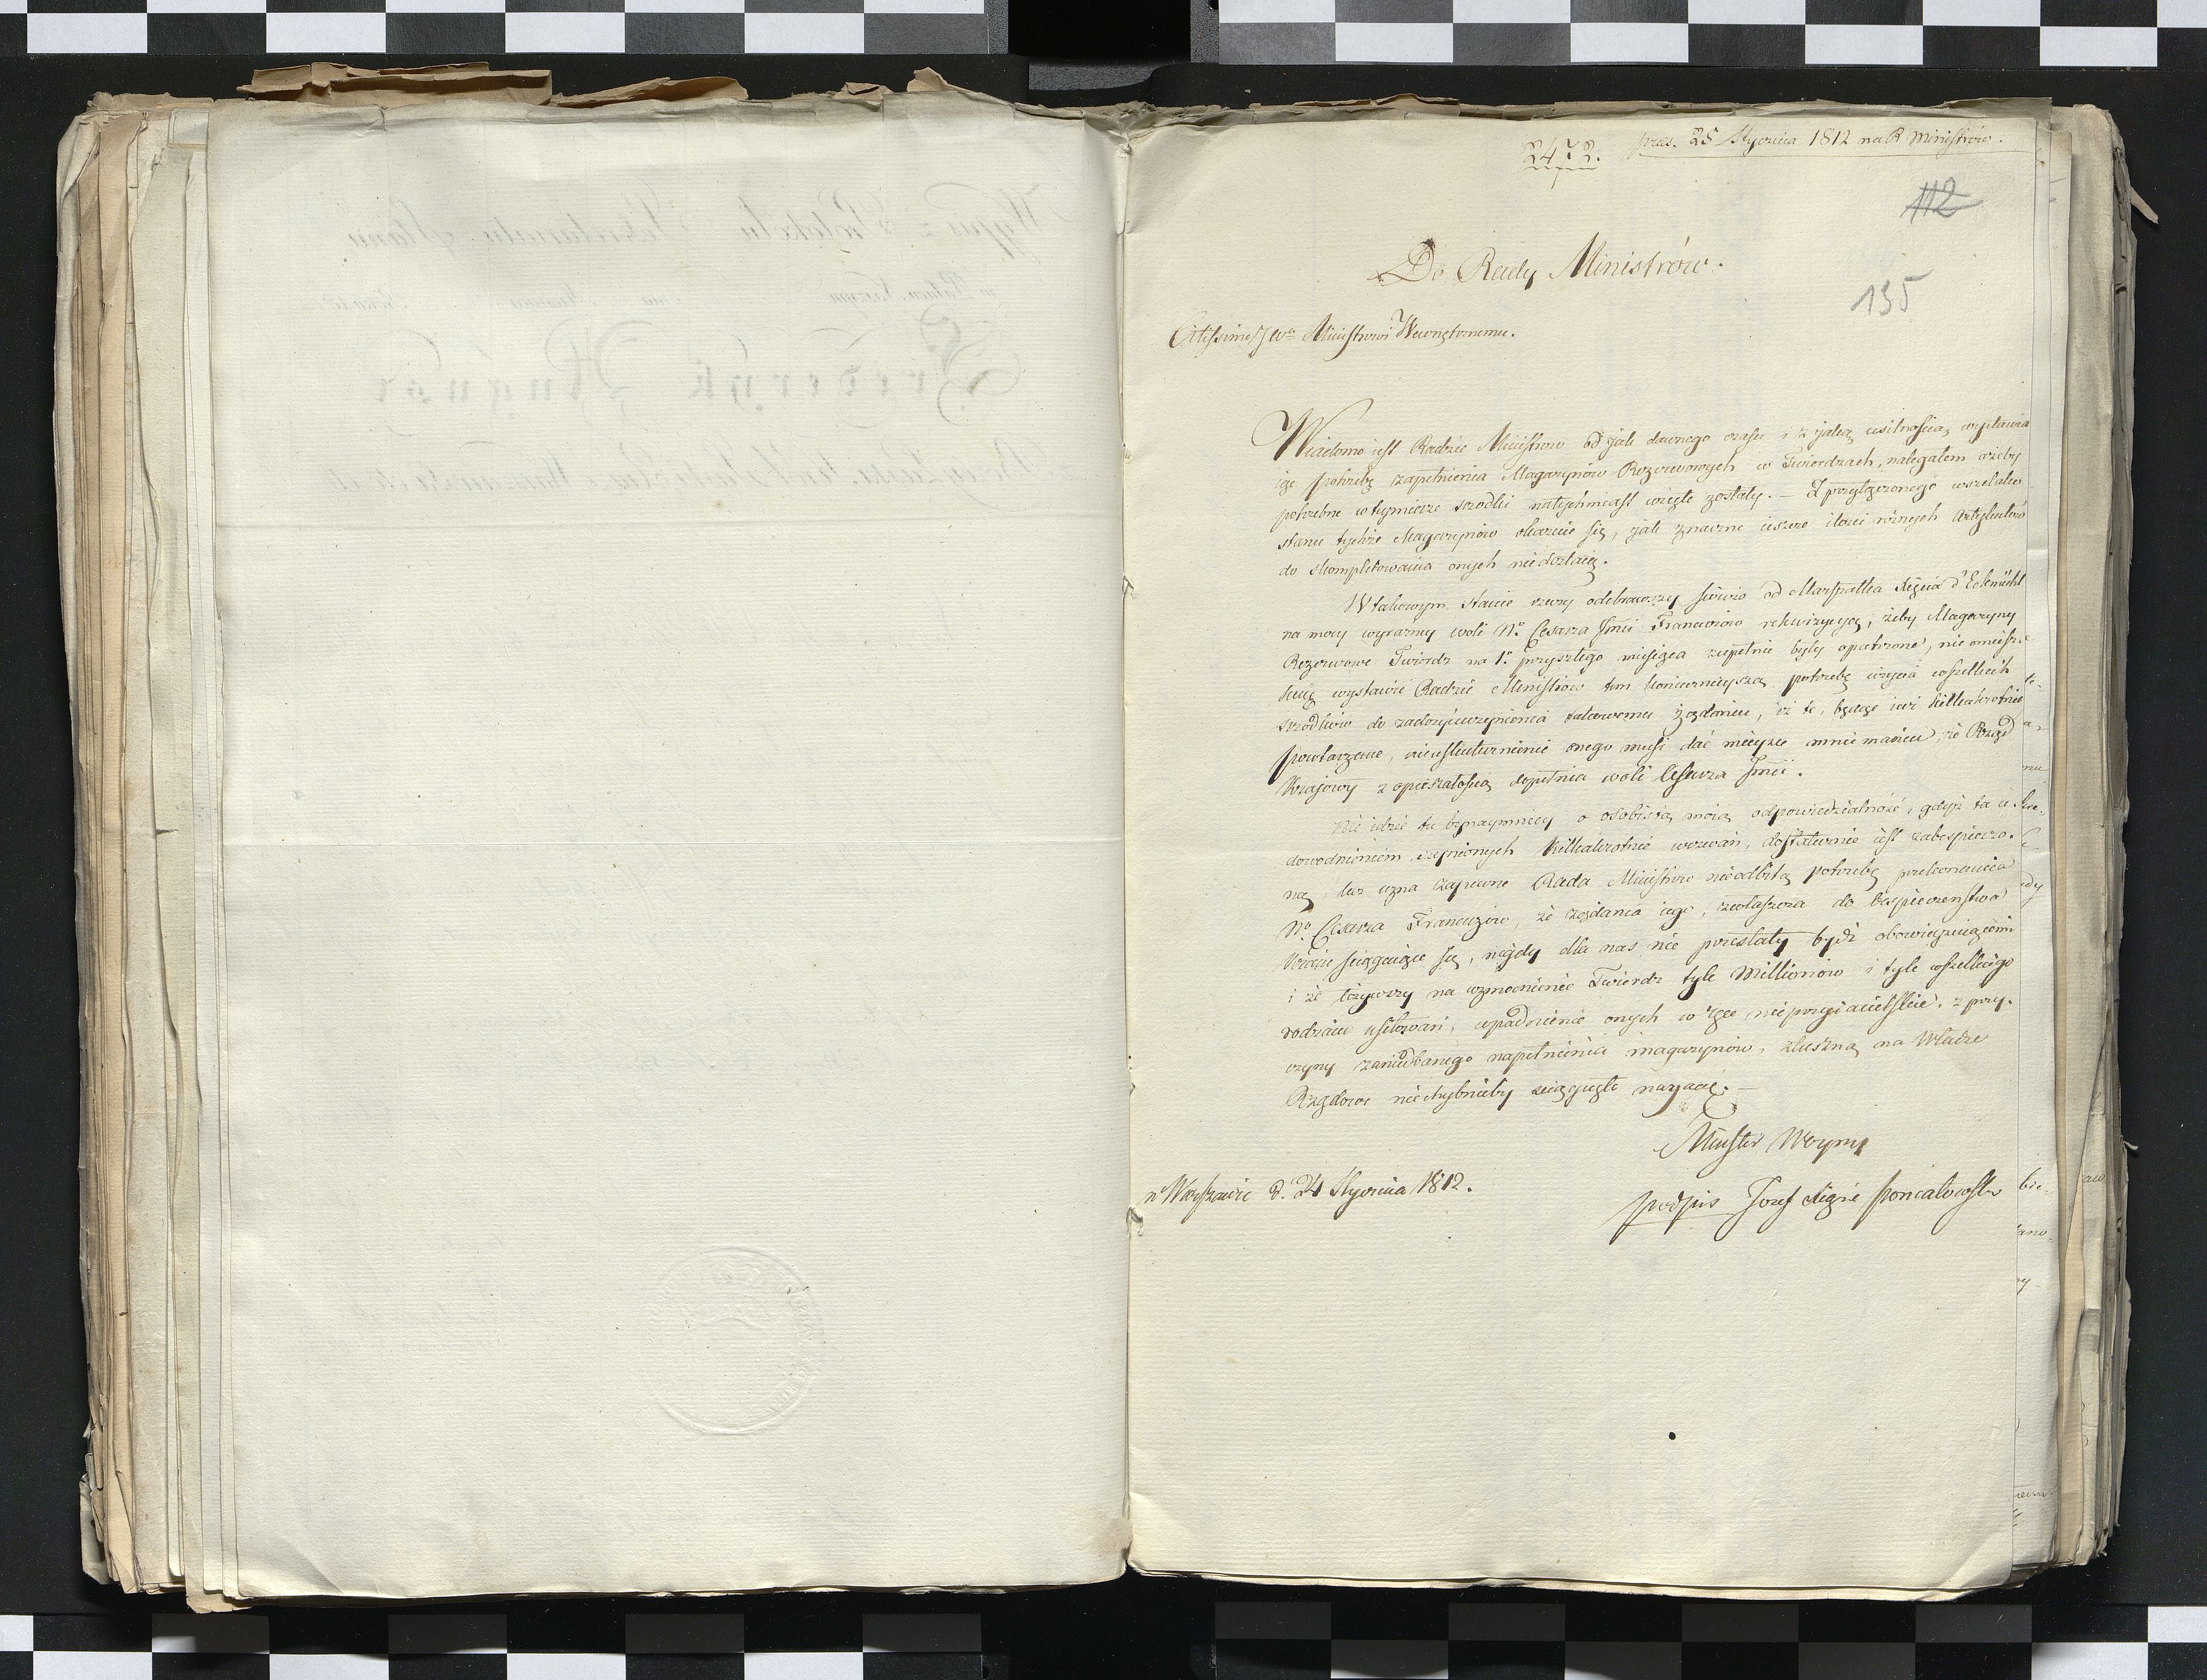 2472. pres. 25 Stycznia 1812 na R Ministrów.
112
Do Rady Ministrów.
135
Citissime Ministrowi Wewnętrznemu.
Wiadomo iest Radzie Ministrow od jak dawnego czasu i z jaką usilnością wystawia
iąc potrzebę zapełnienia Magazynów Rezerwowych w Twierdzach, nalegałem ażeby
potrzebne w tymierze srzodki natychmiast wzięte zostały. — Z przyłączonego wszelako
stanu tychże Magazynów okazuie się, jak znaczne ieszcze ilości różnych Artykułów
do skompletowania onych niedostaią.
W takowym stanie rzeczy odebrawszy świeżo od Marszałka Xięcia d'Eckmühl
na mocy wyrazney woli No Cesarza Jmci Francuzow rekwizycyą, żeby Magazyny
Rezerwowe Twierdz na 1o przyszłego miesiąca zupełnie były opatrzone, nie omiesz
kuię wystawić Radzie Ministrow tem koniecznieyszą potrzebę użycia wszelkich
srzodków do zadosyćuczynienia takowemu żądaniu, iż te, będąc iuż kilkakrotnie
powtarzane, nieuskutecznienie onego musi dać mieysce mniemaniu, że Rząd
Kraiowy z opieszałością dopełnia woli Cesarza Jmci.
Nie idzie tu bynaymniey o osobistą moią odpowiedzialność, gdyż ta u
dowodnieniem czynionych kilkakrotnie wezwań, dostatecznie iest zabespieczo.
ną, lecz uzna zapewne Rada Ministrow nieodbitą potrzebę przekonania
No Cesarza Francuzów, że żądania iego, zwłaszcza do bespieczeństwa
Kraiu sciągaiące się, nigdy dla nas nie przestały bydź obowięzuiącemi
i że łożywszy na wzmocnienie Twierdz tyle Millionow i tyle wszelkiego
rodzaiu usiłowań, wpadnienie onych w ręce nieprzyiacielskie, z przy.
czyny zaniedbanego napełnienia magazynów, słuszną na Władze
Rządowe niechybnieby sciągnęło naganę. —
Minister Woyny
w Warszawie d. 24 Stycznia 1812.
podpis Jozef Xiąże Poniatowski